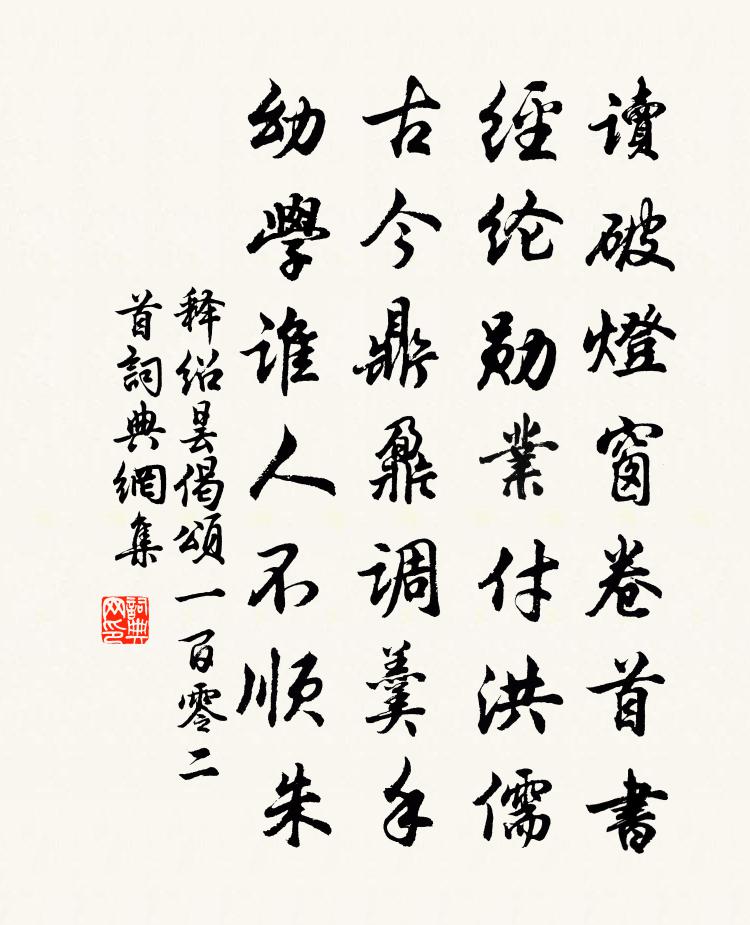 讀破燈窗卷首書
經纶勋業付洪儒
古今鼎鼐调羹手
幼學誰人不順朱
释绍昙偈頌一百零二
首詞典網集
詞典
网印